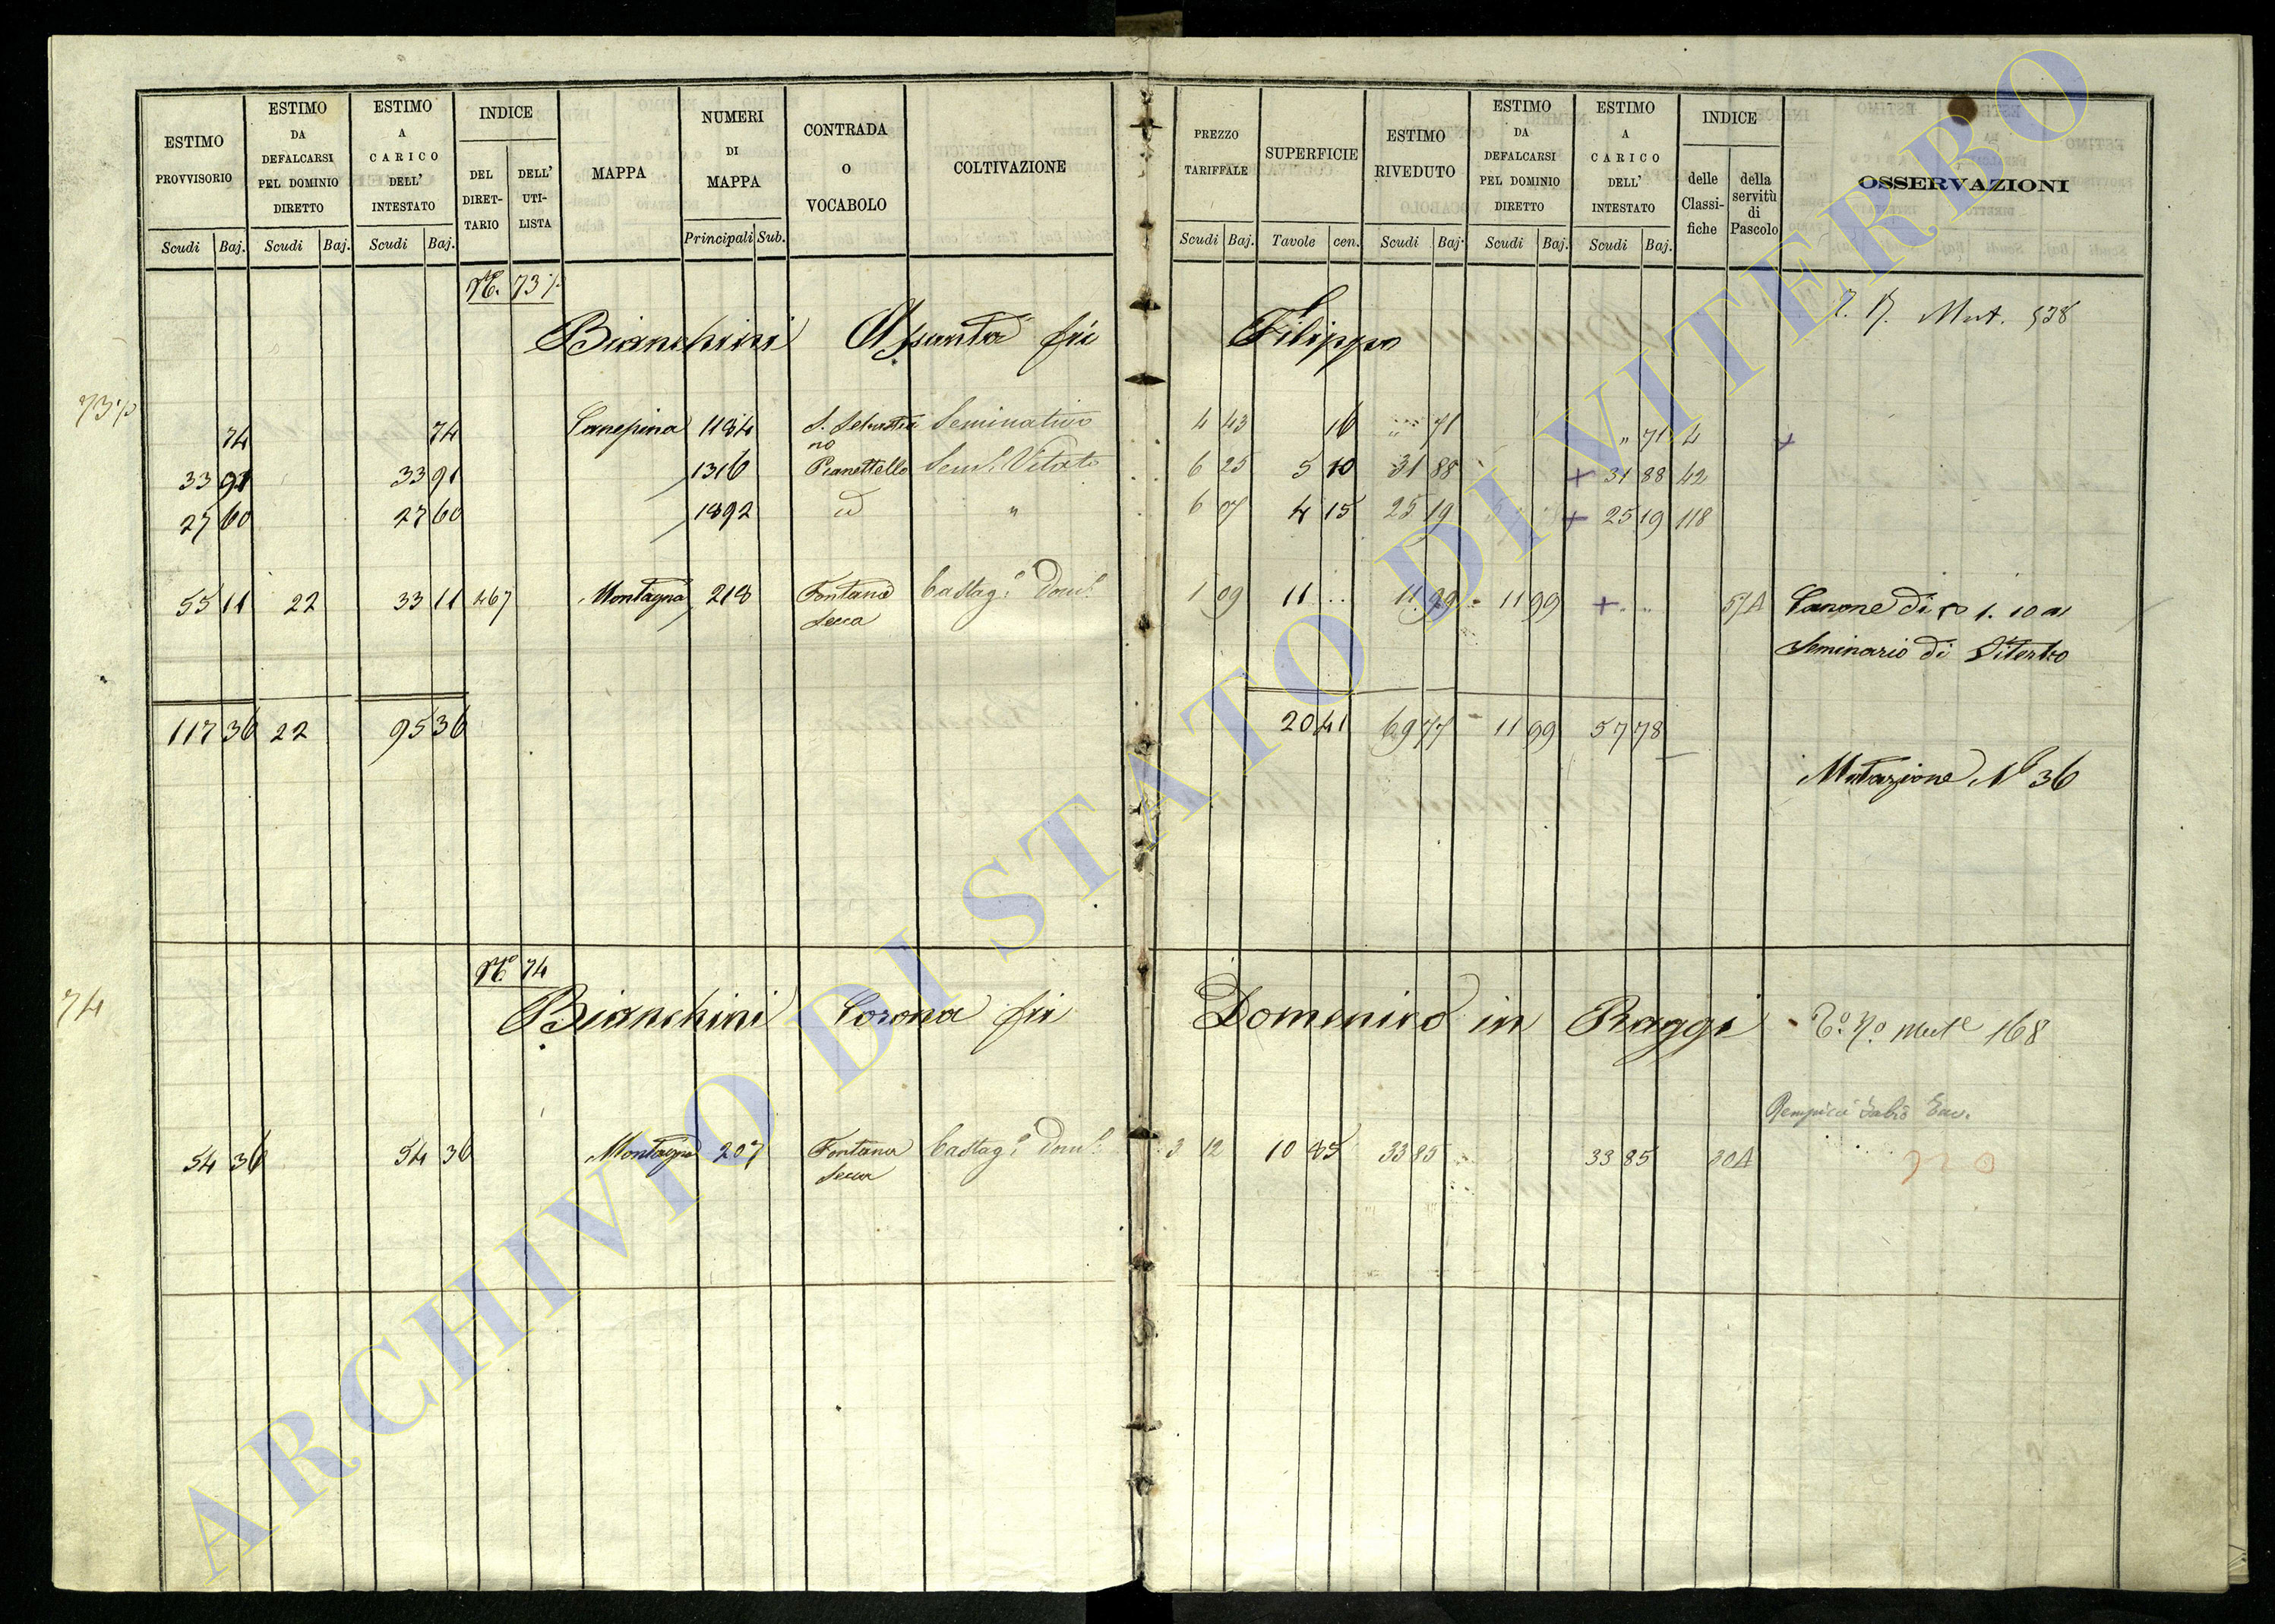 ESTIMO PROVVISORIO Scudi Baj.
ESTIMO DA DEFALCARSI PEL DOMINIO DIRETTO Scudi Baj.
ESTIMO A CARICO DELL' INTESTATO Scudi Baj.
INDICE DEL DIRET-TARIO DELL' UTI-LISTA
MAPPA
NUMERI DI MAPPA Principali Sub.
CONTRADA O VOCABOLO
COLTIVAZIONE
PREZZO TARIFFALE Scudi Baj.
SUPERFICIE Tavole cen.
ESTIMO RIVEDUTO Scudi Baj.
ESTIMO DA DEFALCARSI PEL DOMINIO DIRETTO Scudi Baj.
ESTIMO A CARICO DELL' INTESTATO Scudi Baj.
INDICE delle Classi-fiche della servitù di Pascolo
OSSERVAZIONI
N. 73
Mut. 538
Bianchini Assunta fù Filippo
74 74 Canepina 1184 S. Sebastia Seminativo 4 43 16 71 " 71 4
no
33 91 33 91 1316 Pianettello Sem. Vitato 6 25 5 10 31 88 31 88 42
27 60 27 60 1892 id " 6 07 4 15 25 19 25 19 118
55 11 22 33 11 467 Montagna 218 Fontana Castag. Dom. 1 09 11 .. 11 99 11 99 57A Canone di 1. 10 al
Secca Seminario di Viterbo
117 36 22 95 36 20 41 69 77 11 99 57 78
Mutazione N° 36
74
N° 74
Bianchini Corona fù Domenico in Raggi
Mut 168
54 36 54 36 Montagna 207 Fontana Castag. Dom. 3 12 10 85 33 85 33 85 20A
Secca
ARCHIVIO DI STATO DI VITERBO